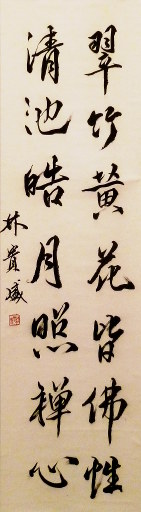 翠竹黄花皆佛性
清池皓月照禅心
林贵盛